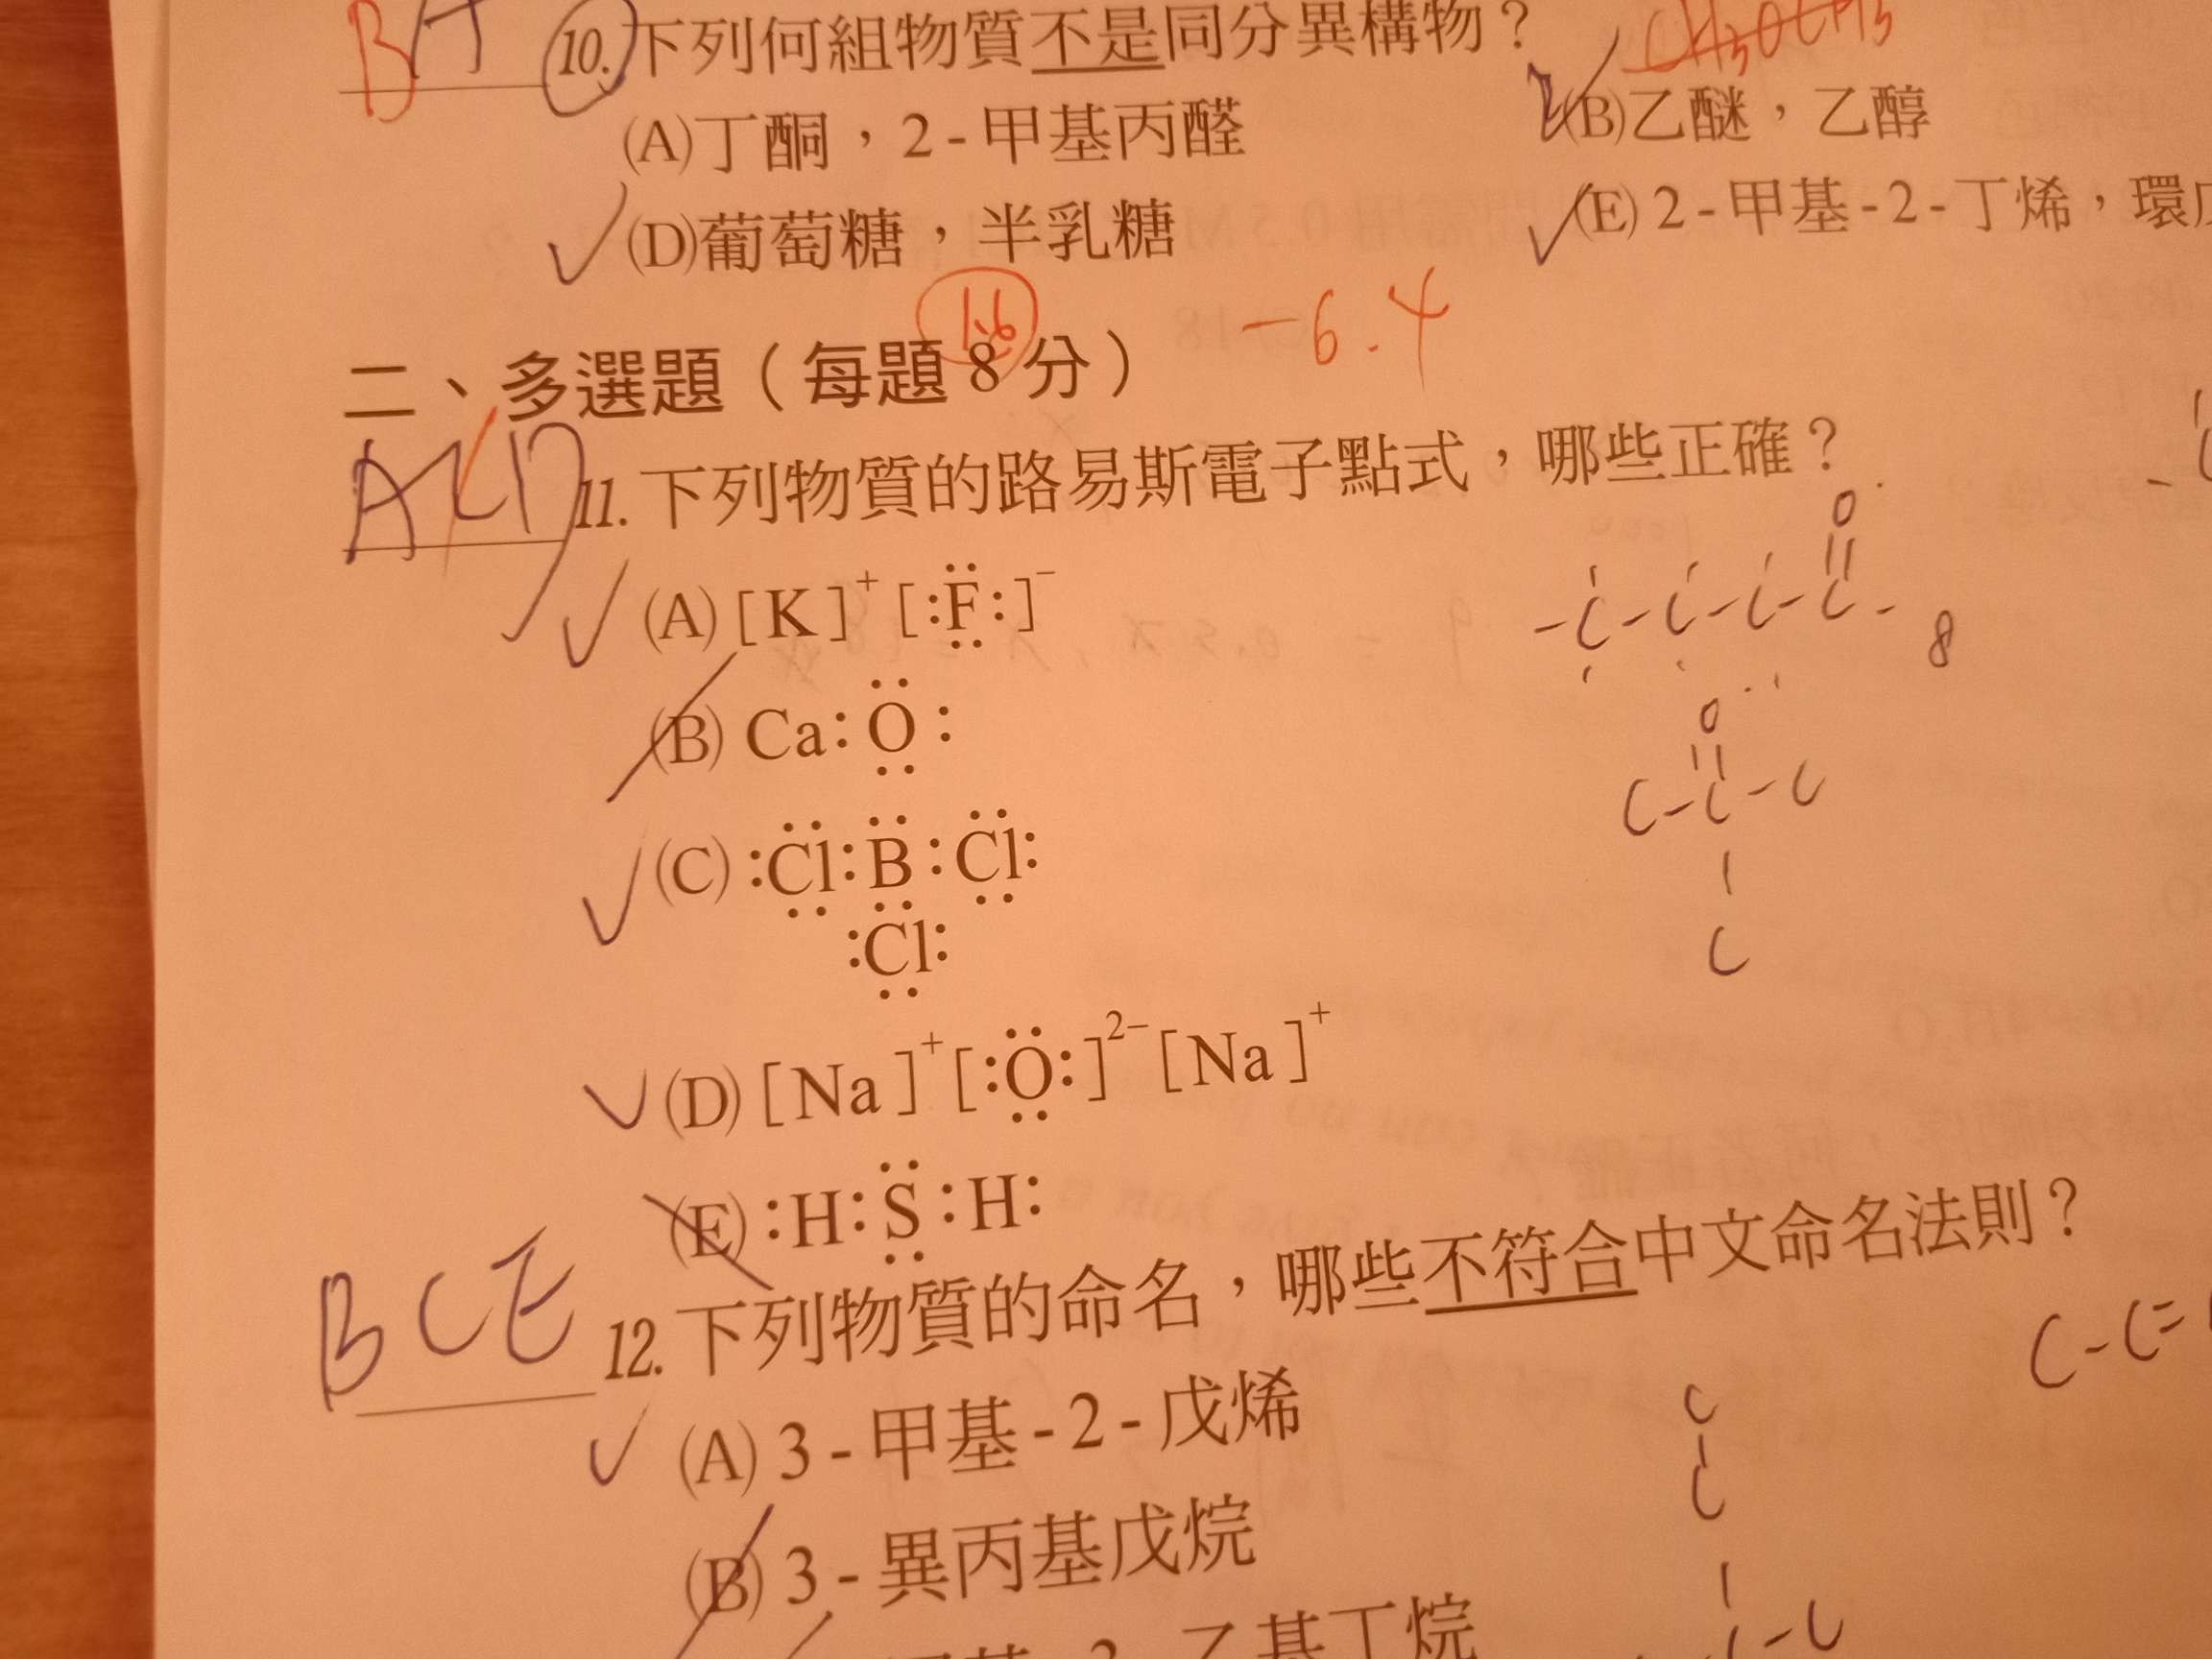 BA 10. 下列何組物質不是同分異構物？ CH3OCH3
(A)丁酮，2-甲基丙醛 (B)乙醚，乙醇
(D)葡萄糖，半乳糖 (E) 2-甲基-2-丁烯，環
1.6 -6.4
二、多選題（每題 8 分）
ACD 11. 下列物質的路易斯電子點式，哪些正確？
(A) [K]⁺ [:F̤̈:]⁻
(B) Ca:Ö̤:
(C) :C̤̈l:B̤̈:C̤̈l:
:C̤l:
(D) [Na]⁺ [:Ö̤:]²⁻ [Na]⁺
(E) :H:S̤̈:H:
O
-C-C-C-C- 8
O
C-C-C
C
BCE 12. 下列物質的命名，哪些不符合中文命名法則？
C-C=
(A) 3-甲基-2-戊烯
C
C
(B) 3-異丙基戊烷
乙基丁烷
-C